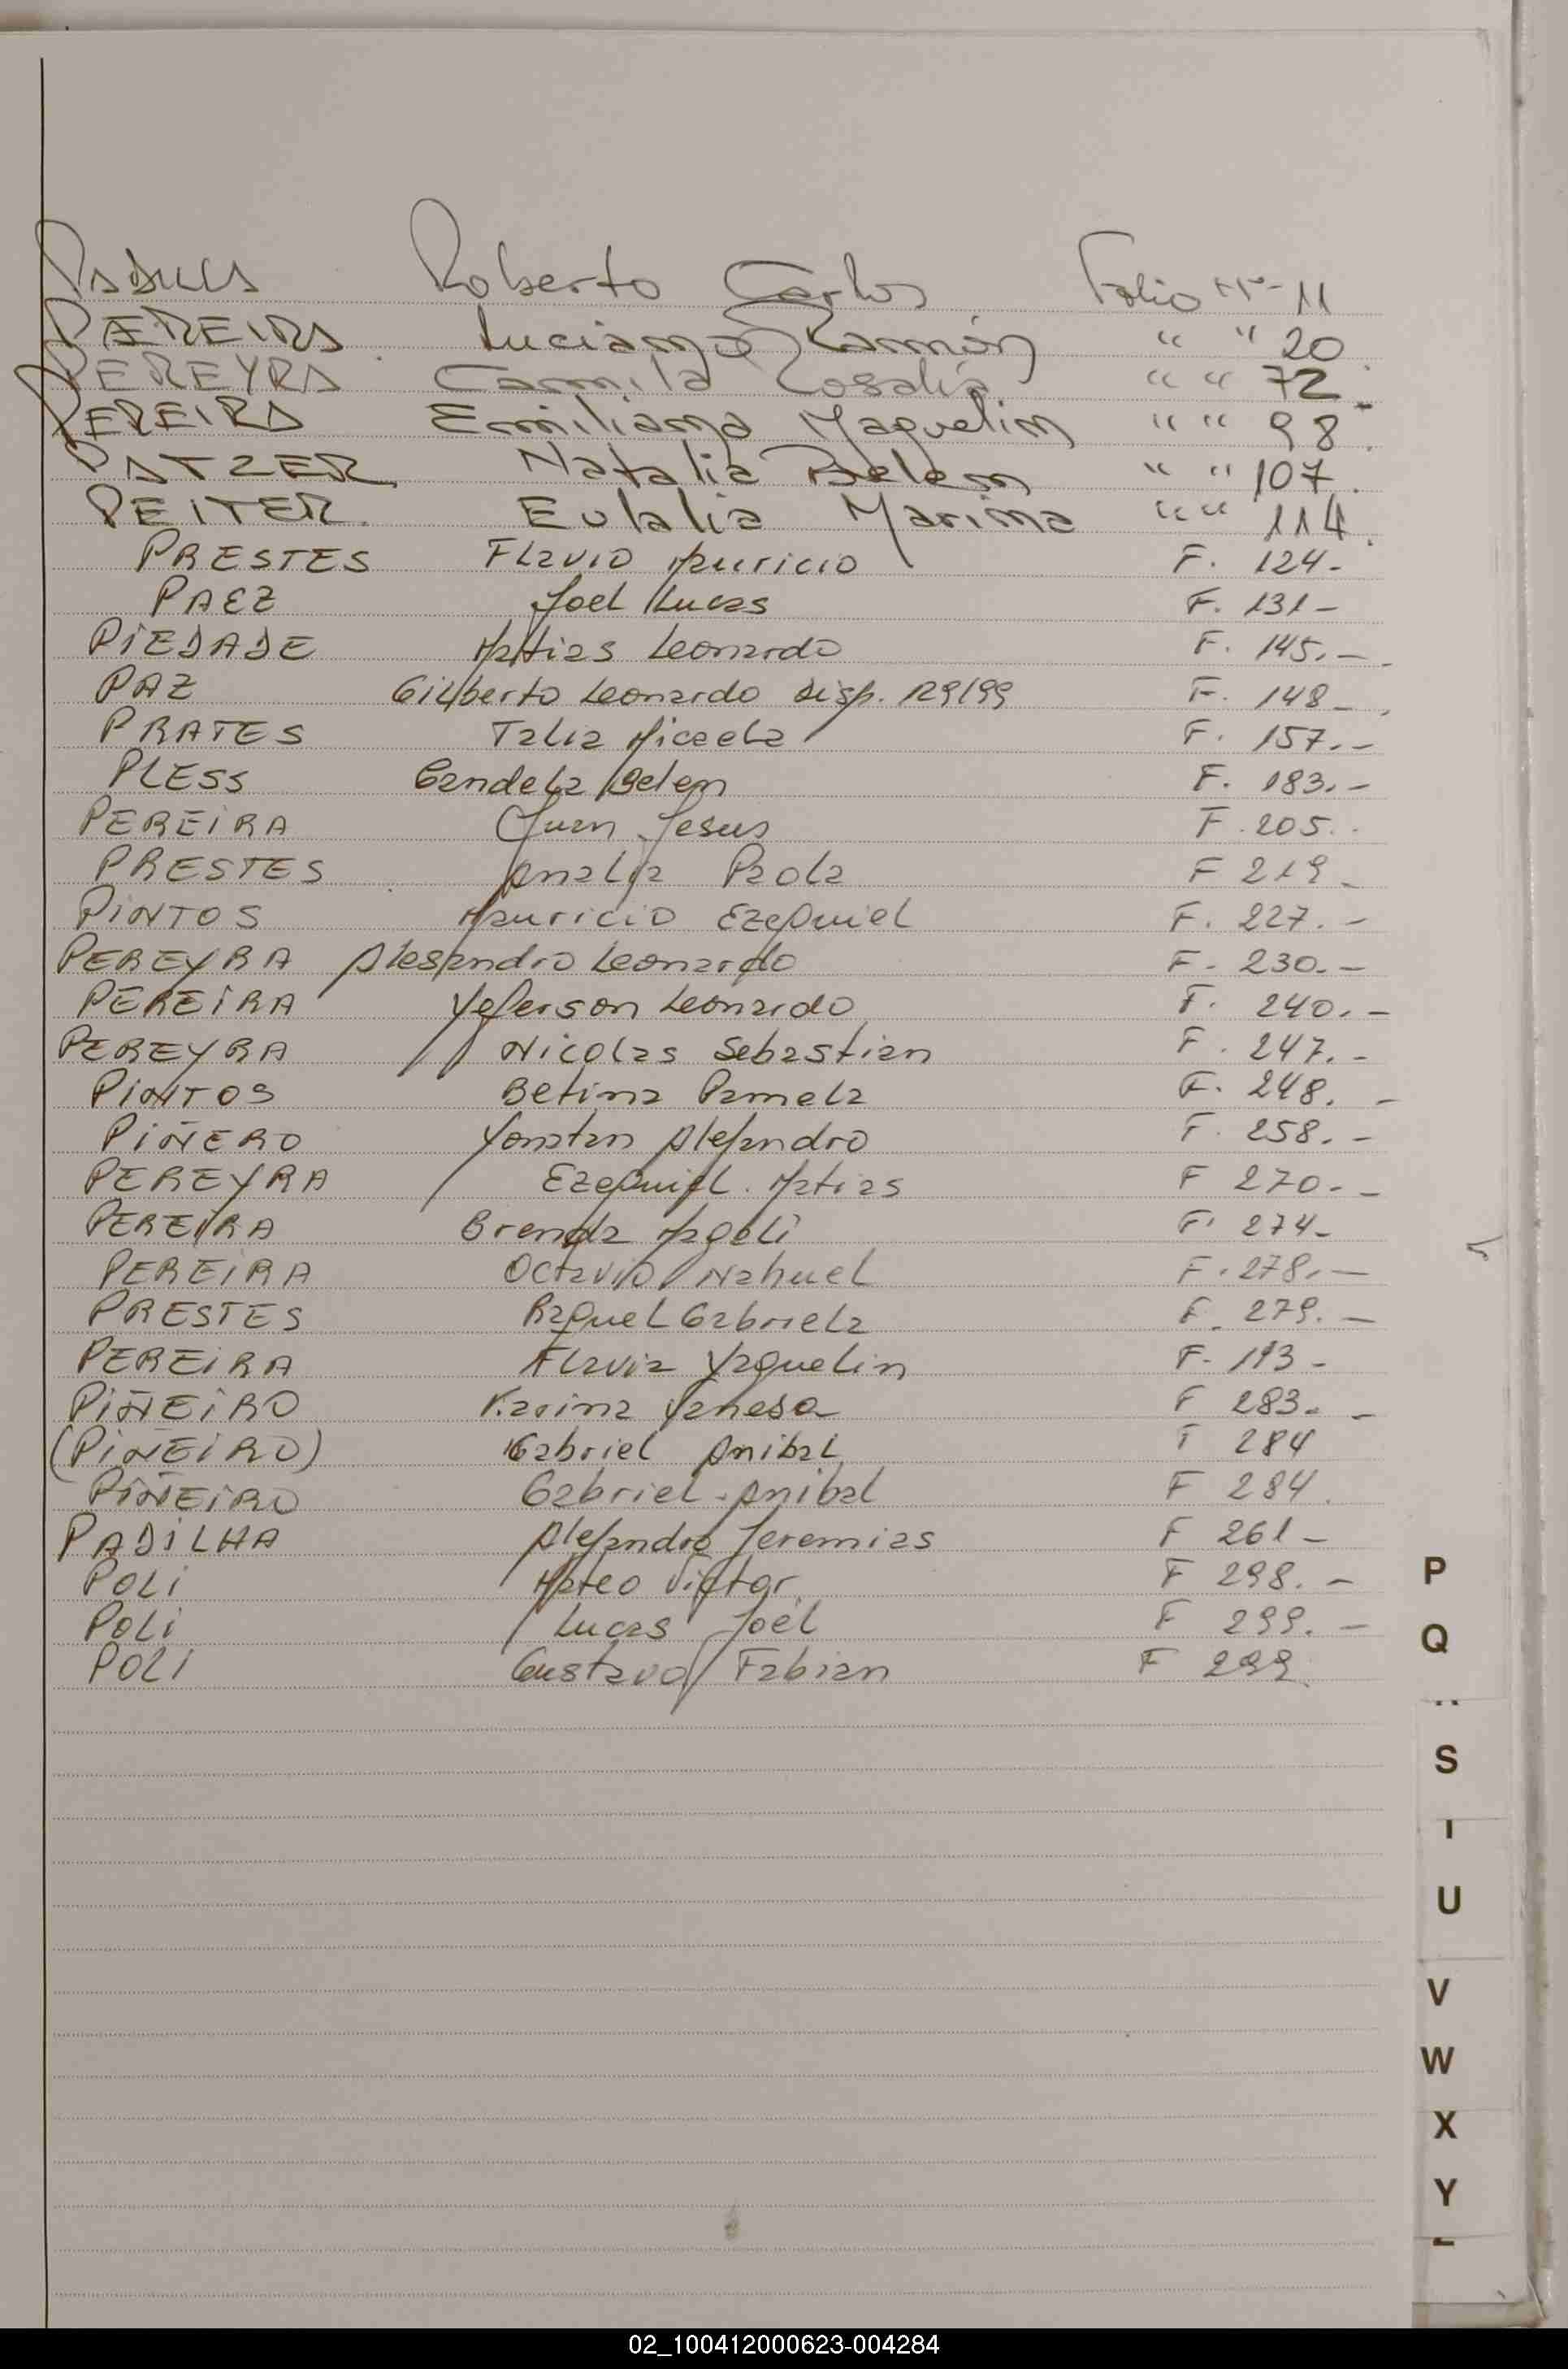 Roberto Carlos Folio Nº 11
PEREIRA Luciano Ramón " " 20
PEREYRA Camila Rosalia " " 72
PEREIRA Emiliana Yaquelin " " 98
PATZER Natalia Belem " " 107
PEITER Eulalia Marina " " 114
PRESTES Flavio Mauricio F. 124-
PAEZ Joel Lucas F. 131-
PIEDADE Matias Leonardo F. 145.-
PAZ Gilberto Leonardo Disp. 129/99 F. 148-
PRATES Talia Micaela F. 157.-
PLESS Candela Belem F. 183.-
PEREIRA Juan Jesus F. 205.
PRESTES Analia Paola F 219-
PINTOS Mauricio Ezequiel F. 227.-
PEREYRA Alesandro Leonardo F. 230.-
PEREIRA Yeferson Leonardo F. 240.-
PEREYRA Nicolas Sebastian F. 247.-
PINTOS Betina Pamela F. 248.
PIÑERO Yonatan Alejandro F. 258.-
PEREYRA Ezequiel Matias F 270.-
PEREIRA Brenda Magali F. 274-
PEREIRA Octavio Nahuel F. 278.-
PRESTES Raquel Gabriela F. 279.-
PEREIRA Flavia Yaquelin F. 193-
PIÑEIRO Karina Vanesa F 283.-
(PIÑEIRO) Gabriel Anibal F 284
PIÑEIRO Gabriel Anibal F 284.
PADILHA Alejandro Jeremias F 261-
POLI Mateo Victor F 298.-
POLI Lucas Joél F 299.-
POLI Gustavo Fabian F 299.
P
Q
S
T
U
V
W
X
Y
02_100412000623-004284